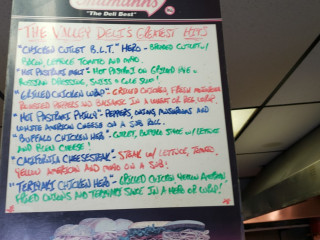 Thumann's
"The Deli Best"
THE VALLEY DELI'S GREATEST HITS
"CHICKEN CUTLET B.L.T." HERO - BREADED CUTLET w/
BACON, LETTUCE TOMATO AND MAYO.
"HOT PASTRAMI MELT" - HOT PASTRAMI ON GRILLED RYE -
RUSSIAN DRESSING, SWISS + COLE SLAW!
"GRILLED CHICKEN WRAP" - GRILLED CHICKEN, FRESH MOZZARELLA
ROASTED PEPPERS AND BALSAMIC IN A WRAP OR HERO.
"HOT PASTRAMI PHILLY" - PEPPERS, ONIONS, MUSHROOMS AND
WHITE AMERICAN CHEESE ON A SUB ROLL.
"BUFFALO CHICKEN HERO" - CUTLET, BUFFALO SAUCE w/ LETTUCE
AND BLEU CHEESE!
"CALIFORNIA CHEESESTEAK" - STEAK w/ LETTUCE, TOMATO,
YELLOW AMERICAN AND MAYO ON A SUB!
"TERIYAKI CHICKEN HERO" - GRILLED CHICKEN YELLOW AMERICAN,
FRIED ONIONS AND TERIYAKI SAUCE IN A HERO OR WRAP!